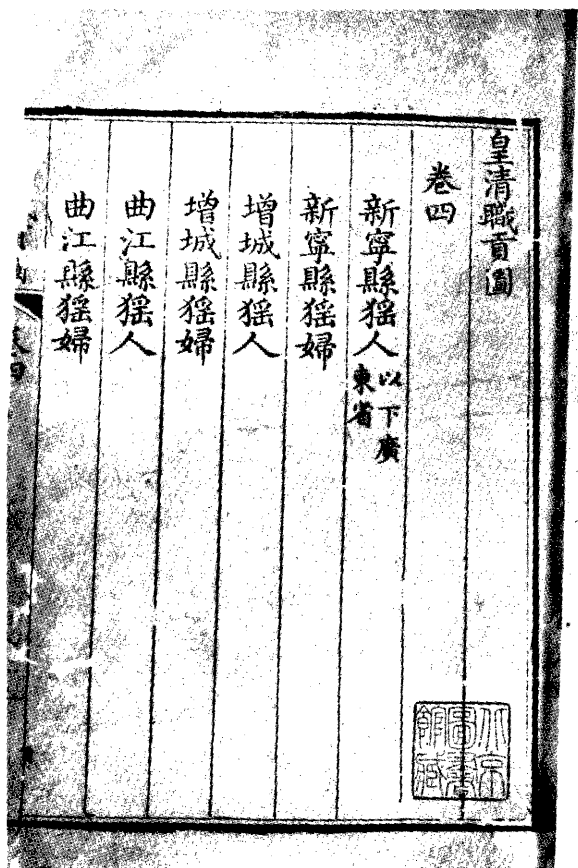 皇清職貢圖
卷四
新寧縣猺人以下廣東省
新寧縣猺婦
增城縣猺人
增城縣猺婦
曲江縣猺人
曲江縣猺婦
北京圖書館藏